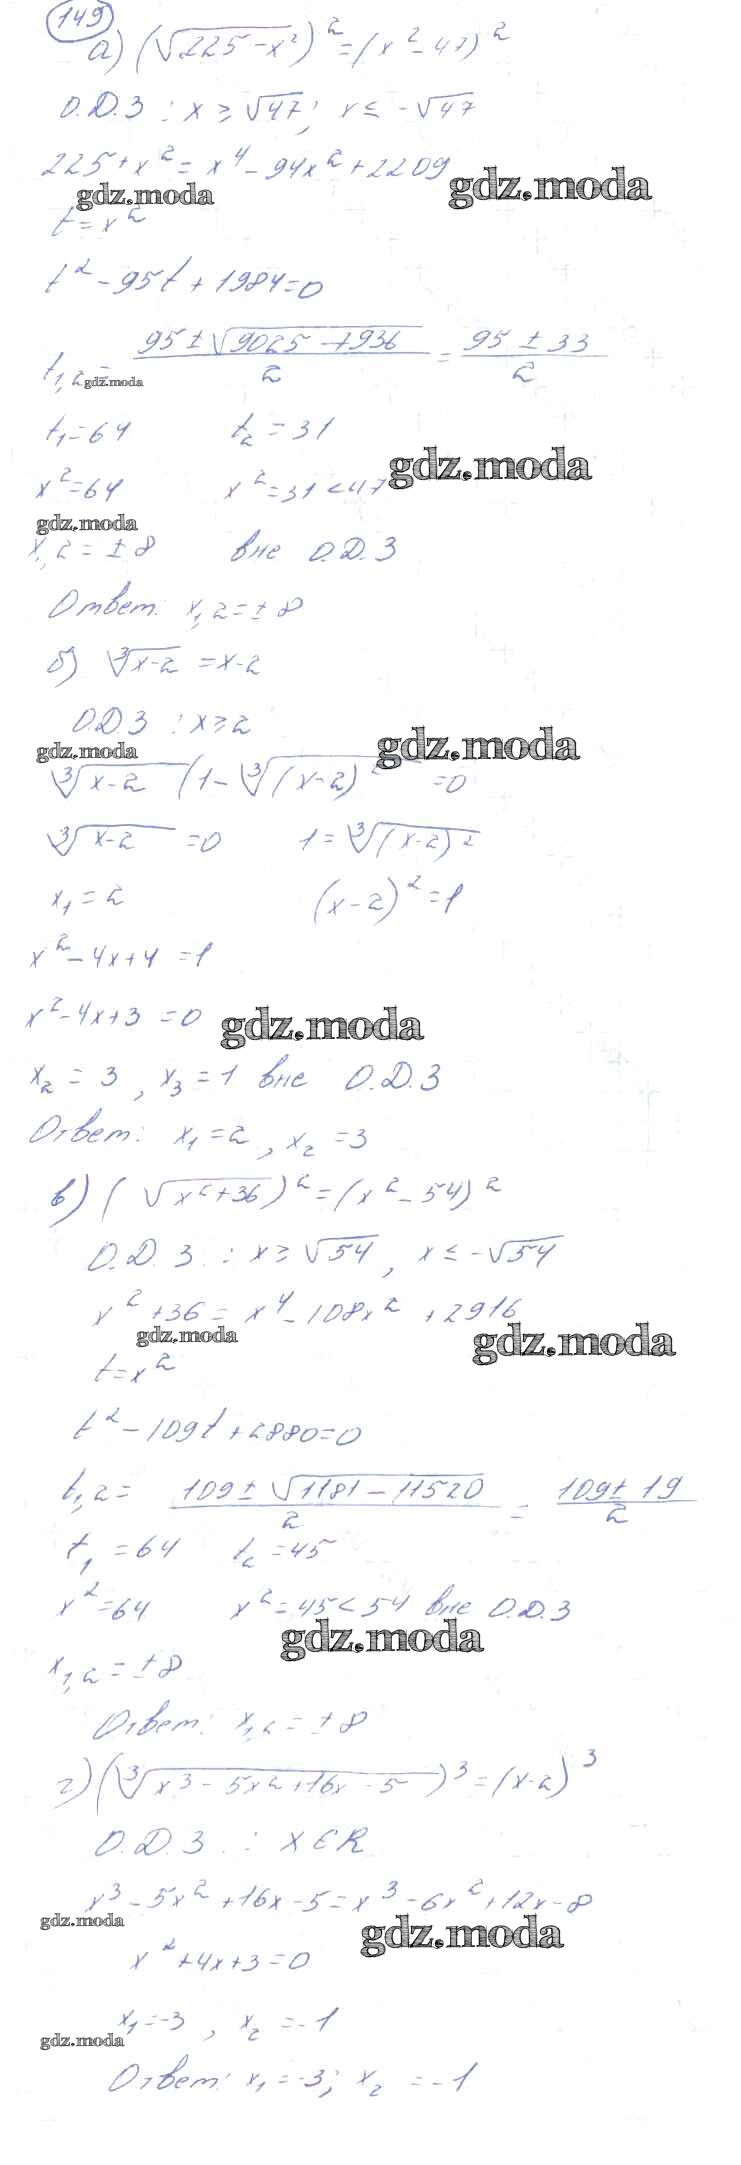 149
а) (√225-x²)² = (x²-47)²
О.Д.З : x ≥ √47; x ≤ -√47
225+x² = x⁴-94x²+2209
gdz.moda gdz.moda
t=x²
t²-95t+1984=0
t₁,₂= 95±√9025-7936 / 2 = 95±33 / 2
gdz.moda
t₁=64 t₂=31
gdz.moda
x²=64 x²=31<47
gdz.moda
x,₂=±8 вне О.Д.З
Ответ: x₁,₂=±8
б) ∛x-2 = x-2
О.Д.З : x≥2
gdz.moda gdz.moda
∛x-2 (1-∛(x-2)² =0
∛x-2 =0 1=∛(x-2)²
x₁=2 (x-2)²=1
x²-4x+4=1
x²-4x+3=0 gdz.moda
x₂=3, x₃=1 вне О.Д.З
Ответ: x₁=2, x₂=3
в) (√x²+36)²=(x²-54)²
О.Д.З : x≥√54, x≤-√54
x²+36=x⁴-108x²+2916
gdz.moda gdz.moda
t=x²
t²-109t+2880=0
t₁,₂= 109±√1181-11520 / 2 = 109±19 / 2
t₁=64 t₂=45
x²=64 x²=45<54 вне О.Д.З
gdz.moda
x₁,₂=±8
Ответ: x₁,₂=±8
г) (∛x³-5x²+16x-5)³=(x-2)³
О.Д.З : x∈R
x³-5x²+16x-5=x³-6x²+12x-8
gdz.moda gdz.moda
x²+4x+3=0
x₁=-3, x₂=-1
gdz.moda
Ответ: x₁=-3; x₂=-1